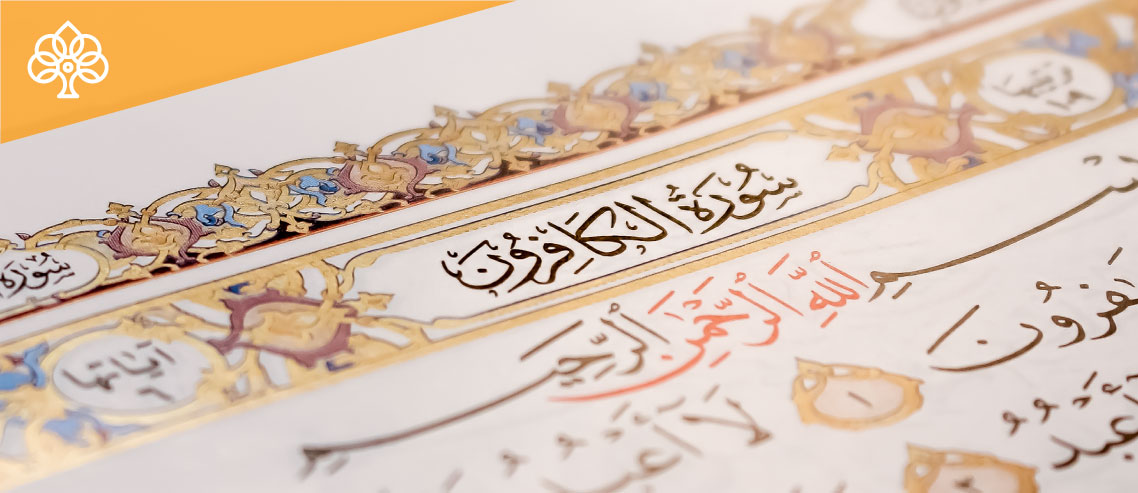 سُورَة
رقمها ١٠٩ سُورَةُ الكَافِرُونَ آياتها ٦
بِسْمِ اللَّهِ الرَّحْمَٰنِ الرَّحِيمِ
فِرُونَ ١ لَا أَعْبُدُ
أَعْبُدُ